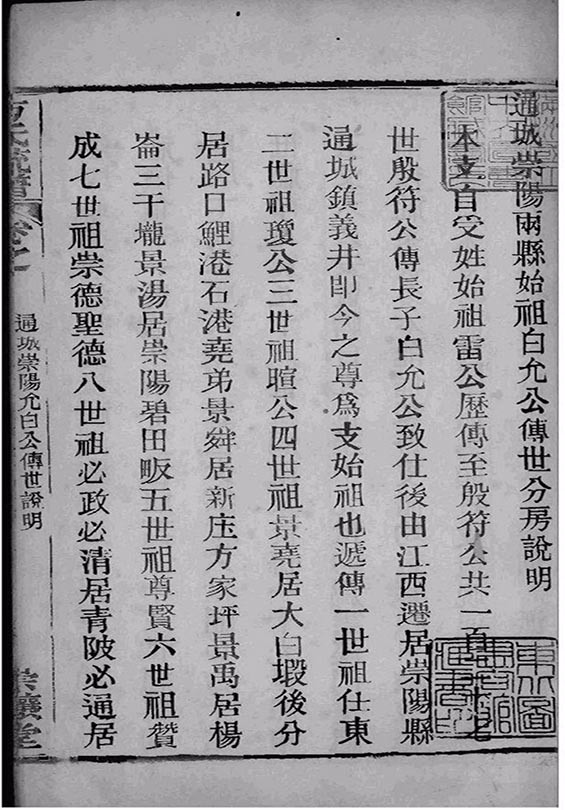 通城崇陽兩縣始祖白允公傳世分房說明
本支自受姓始祖雷公歷傳至殷符公共一百
世殷符公傳長子白允公致仕後由江西遷居崇陽縣
通城鎮義井即今之尊爲支始祖也遞傳一世祖仕東
二世祖瓊公三世祖暄公四世祖景堯居大白塅後分
居路口鯉港石港堯弟景舜居新庄方家坪景禹居楊
崙三干壠景湯居崇陽碧田畈五世祖尊賢六世祖贊
成七世祖崇德聖德八世祖必政必清居青陂必通居
方氏統譜
通城崇陽允白公傳世說明